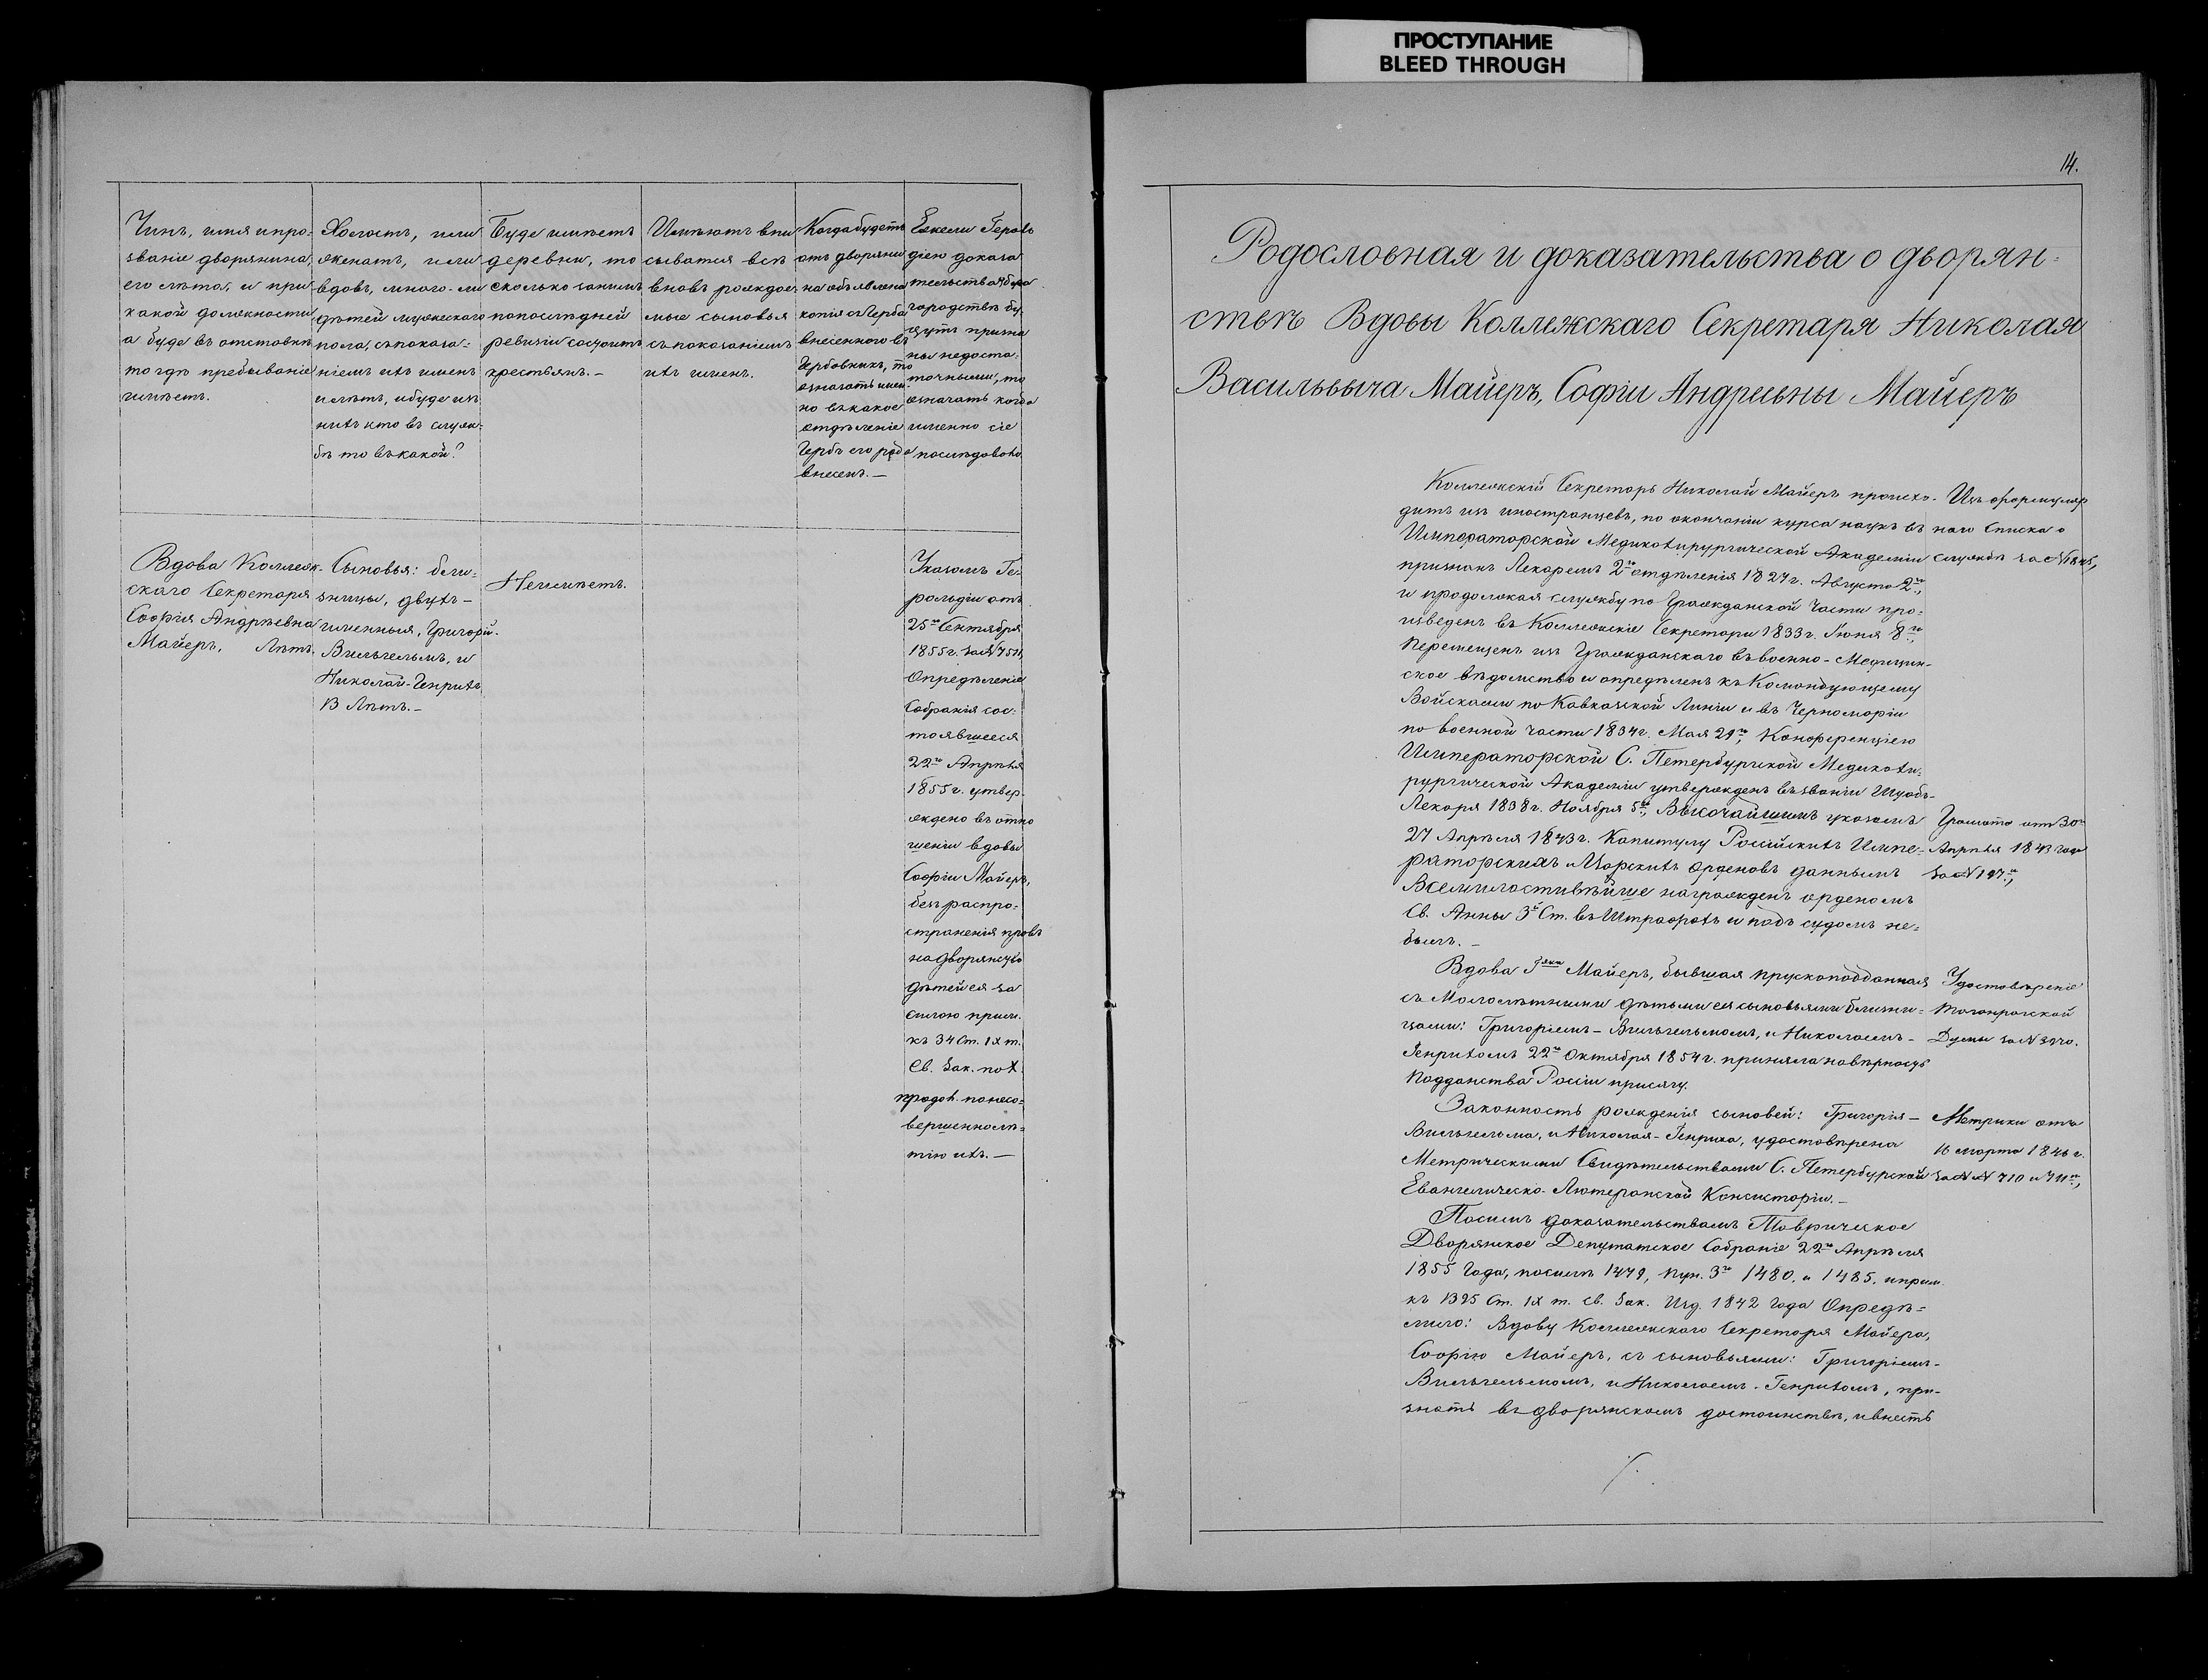 ПРОСТУПАНИЕ
BLEED THROUGH
Чинъ, имя и про-
званіе дворянина,
его лѣта, и при
какой должности,
а буде въ отставкѣ
то гдѣ пребываніе
имѣетъ.
Холостъ, или
женатъ, или
вдовъ, много-ли
дѣтей мужескаго
пола, съ показа-
ніемъ ихъ именъ
и лѣтъ, и буде изъ
нихъ кто въ служ-
бѣ то въ какой?
Буде имѣетъ
деревни, то
сколько за нимъ
по последней
ревизіи состоитъ
крестьянъ.-
Имѣютъ впи
сыватся всѣ
вновь рождае-
мые сыновья
съ показаніемъ
ихъ именъ.
Когда будетъ
отъ дворяни
на объявлена
копія съ Герба
внесеннаго въ
Гербовникъ, то
означать имен
но въ какое
отдѣленіе
Гербъ его рода
внесенъ.-
Ежели Героль
діею доказа
тельства о бла
городствѣ бу
дутъ призна
ны недоста-
точными, то
означать когда
именно сіе
последовало
Вдова Коллеж-
скаго Секретаря
Софія Андрѣевна
Майеръ, Лѣтъ.
Сыновья: близ-
знецы, двухъ-
именныя, Григорій-
Вильгельмъ, и
Николай-Генрихъ
13 Лѣтъ.-
Неимѣетъ.
Указомъ Ге-
рольдіи отъ
25го Сентября
1855 г. за № 7511,
Опредѣленіе
Собранія сос-
тоявшееся
22го Апрѣля
1855 г. утвер-
ждено въ отно
шеніи вдовы
Софіи Майеръ,
безъ распро-
страненія правъ
на дворянство
дѣтей ея за
силою прим.
къ 34 Ст. IX т.
Св. Зак. по X
продол. по несо-
вершеннолѣ-
тію ихъ.-
14.
Родословная и доказательства о дворян-
ствѣ Вдовы Коллежскаго Секретаря Николая
Васильевича Майеръ, Софіи Андреевны Майеръ
Коллежскій Секретарь Николай Майеръ происхо-
дитъ изъ иностранцевъ, по окончаніи курса наукъ въ
Императорской Медикохирургической Академіи
признанъ Лекаремъ 2го отдѣленія 1827 г. Августа 2го,
и продолжая службу по Гражданской Части про-
изведенъ въ Коллежскіе Секретари 1833 г. Іюня 8го,
перемещенъ изъ Гражданскаго въ военно-Медицин-
ское вѣдомство и опредѣленъ къ Командующему
Войсками по Кавказской Линіи и въ Черноморіи
по военной части 1834 г. Мая 29го, Конференціею
Императорской С. Петербургской Медикохи-
рургической Академіи утвержденъ въ званіи Штабъ-
Лекаря 1838 г. Ноября 5го, Высочайшимъ указомъ
27 Апрѣля 1843 г. Капитулу Россійскихъ Импе-
раторскихъ и Царскихъ Орденовъ даннымъ
Всемилостивѣйше награжденъ орденомъ
Св. Анны 3й Ст. въ Штрафахъ и подъ судомъ не-
былъ.-
Вдова Гжи Майеръ, бывшая прускоподданная
съ Малолѣтними дѣтьми ея сыновьями близне-
цами: Григоріемъ-Вильгельмомъ, и Николаемъ-
Генрихомъ 22го Октября 1854 г. приняла на вѣрность
подданства Россіи присягу.
Законность рожденія сыновей: Григорія-
Вильгельма, и Николая-Генриха, удостовѣрена
Метрическими Свидѣтельствами С. Петербурской
Евангелическо-Лютеранской Консисторіи.-
По симъ доказательствамъ Таврическое
Дворянское Депутатское Собраніе 22го Апрѣля
1855 Года, по силѣ 1479, пун. 3го 1480, и 1485, и прим.
къ 1395 Ст. IX т. Св. Зак. Изд. 1842 Года Опредѣ-
лило: Вдову Коллежскаго Секретаря Майера,
Софію Майеръ, съ сыновьями: Григоріемъ-
Вильгельмомъ, и Николаемъ-Генрихомъ, при-
знать въ дворянскомъ достоинствѣ, и внесть
Изъ формуляр
наго Списка о
службѣ за № 1845,
Грамата отъ 30го
Апрѣля 1843 года
за № 197м,
Удостовѣреніе
Таганрогской
Думы за № 3970.
Метрики отъ
16 марта 1846 г.
за № № 710 и 711м,